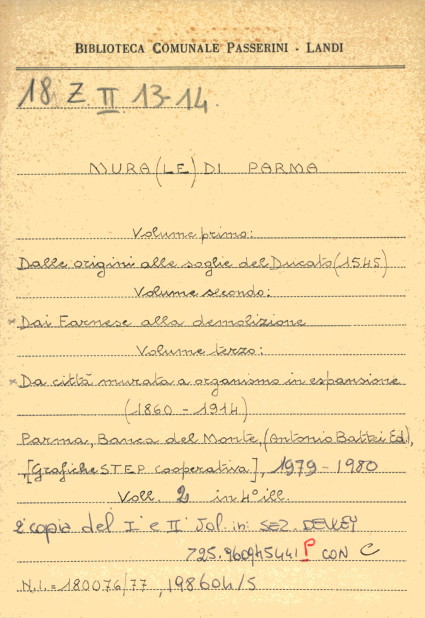 BIBLIOTECA COMUNALE PASSERINI - LANDI
18 Z II 13-14
MURA (LE) DI PARMA
Volume primo:
Dalle origini alle soglie del Ducato (1545)
Volume secondo:
* Dai Farnese alla demolizione
Volume terzo:
* Da città murata a organismo in espansione
(1860 - 1914)
Parma, Banca del Monte, (Antonio Battei Ed.),
[Grafiche STEP Cooperativa], 1979 - 1980
Voll. 2 in 4° ill.
2ª copia del I° e II° Vol. in: SEZ. DEWEY
725.960945441 P CON C
N.I. = 180076/77, 198604/5